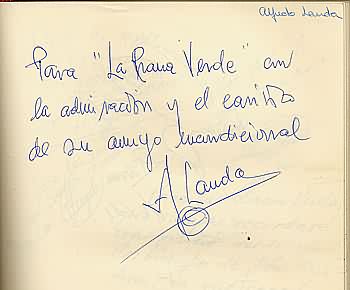 Alfredo Landa
Para "La Rana Verde" con
la admiración y el cariño
de su amigo incondicional
A. Landa